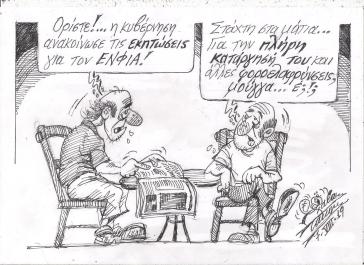 Ορίστε!... η κυβέρνηση
ανακοίνωσε τις εκπτώσεις
για τον ΕΝΦΙΑ!
Στάχτη στα μάτια...
Για την πλήρη
κατάργησή του και
άλλες φοροελαφρύνσεις,
μούγγα... Ε;!;